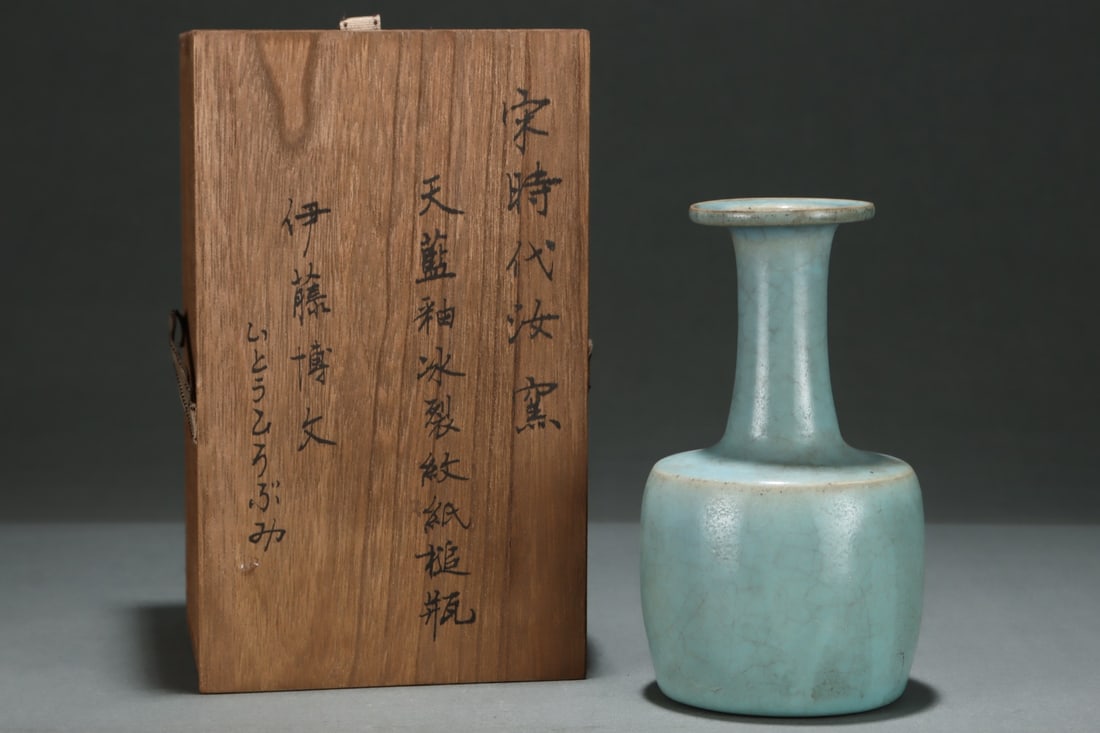 宋時代汝窯
天藍釉冰裂紋紙槌瓶
伊藤博文
いとうひろぶみ